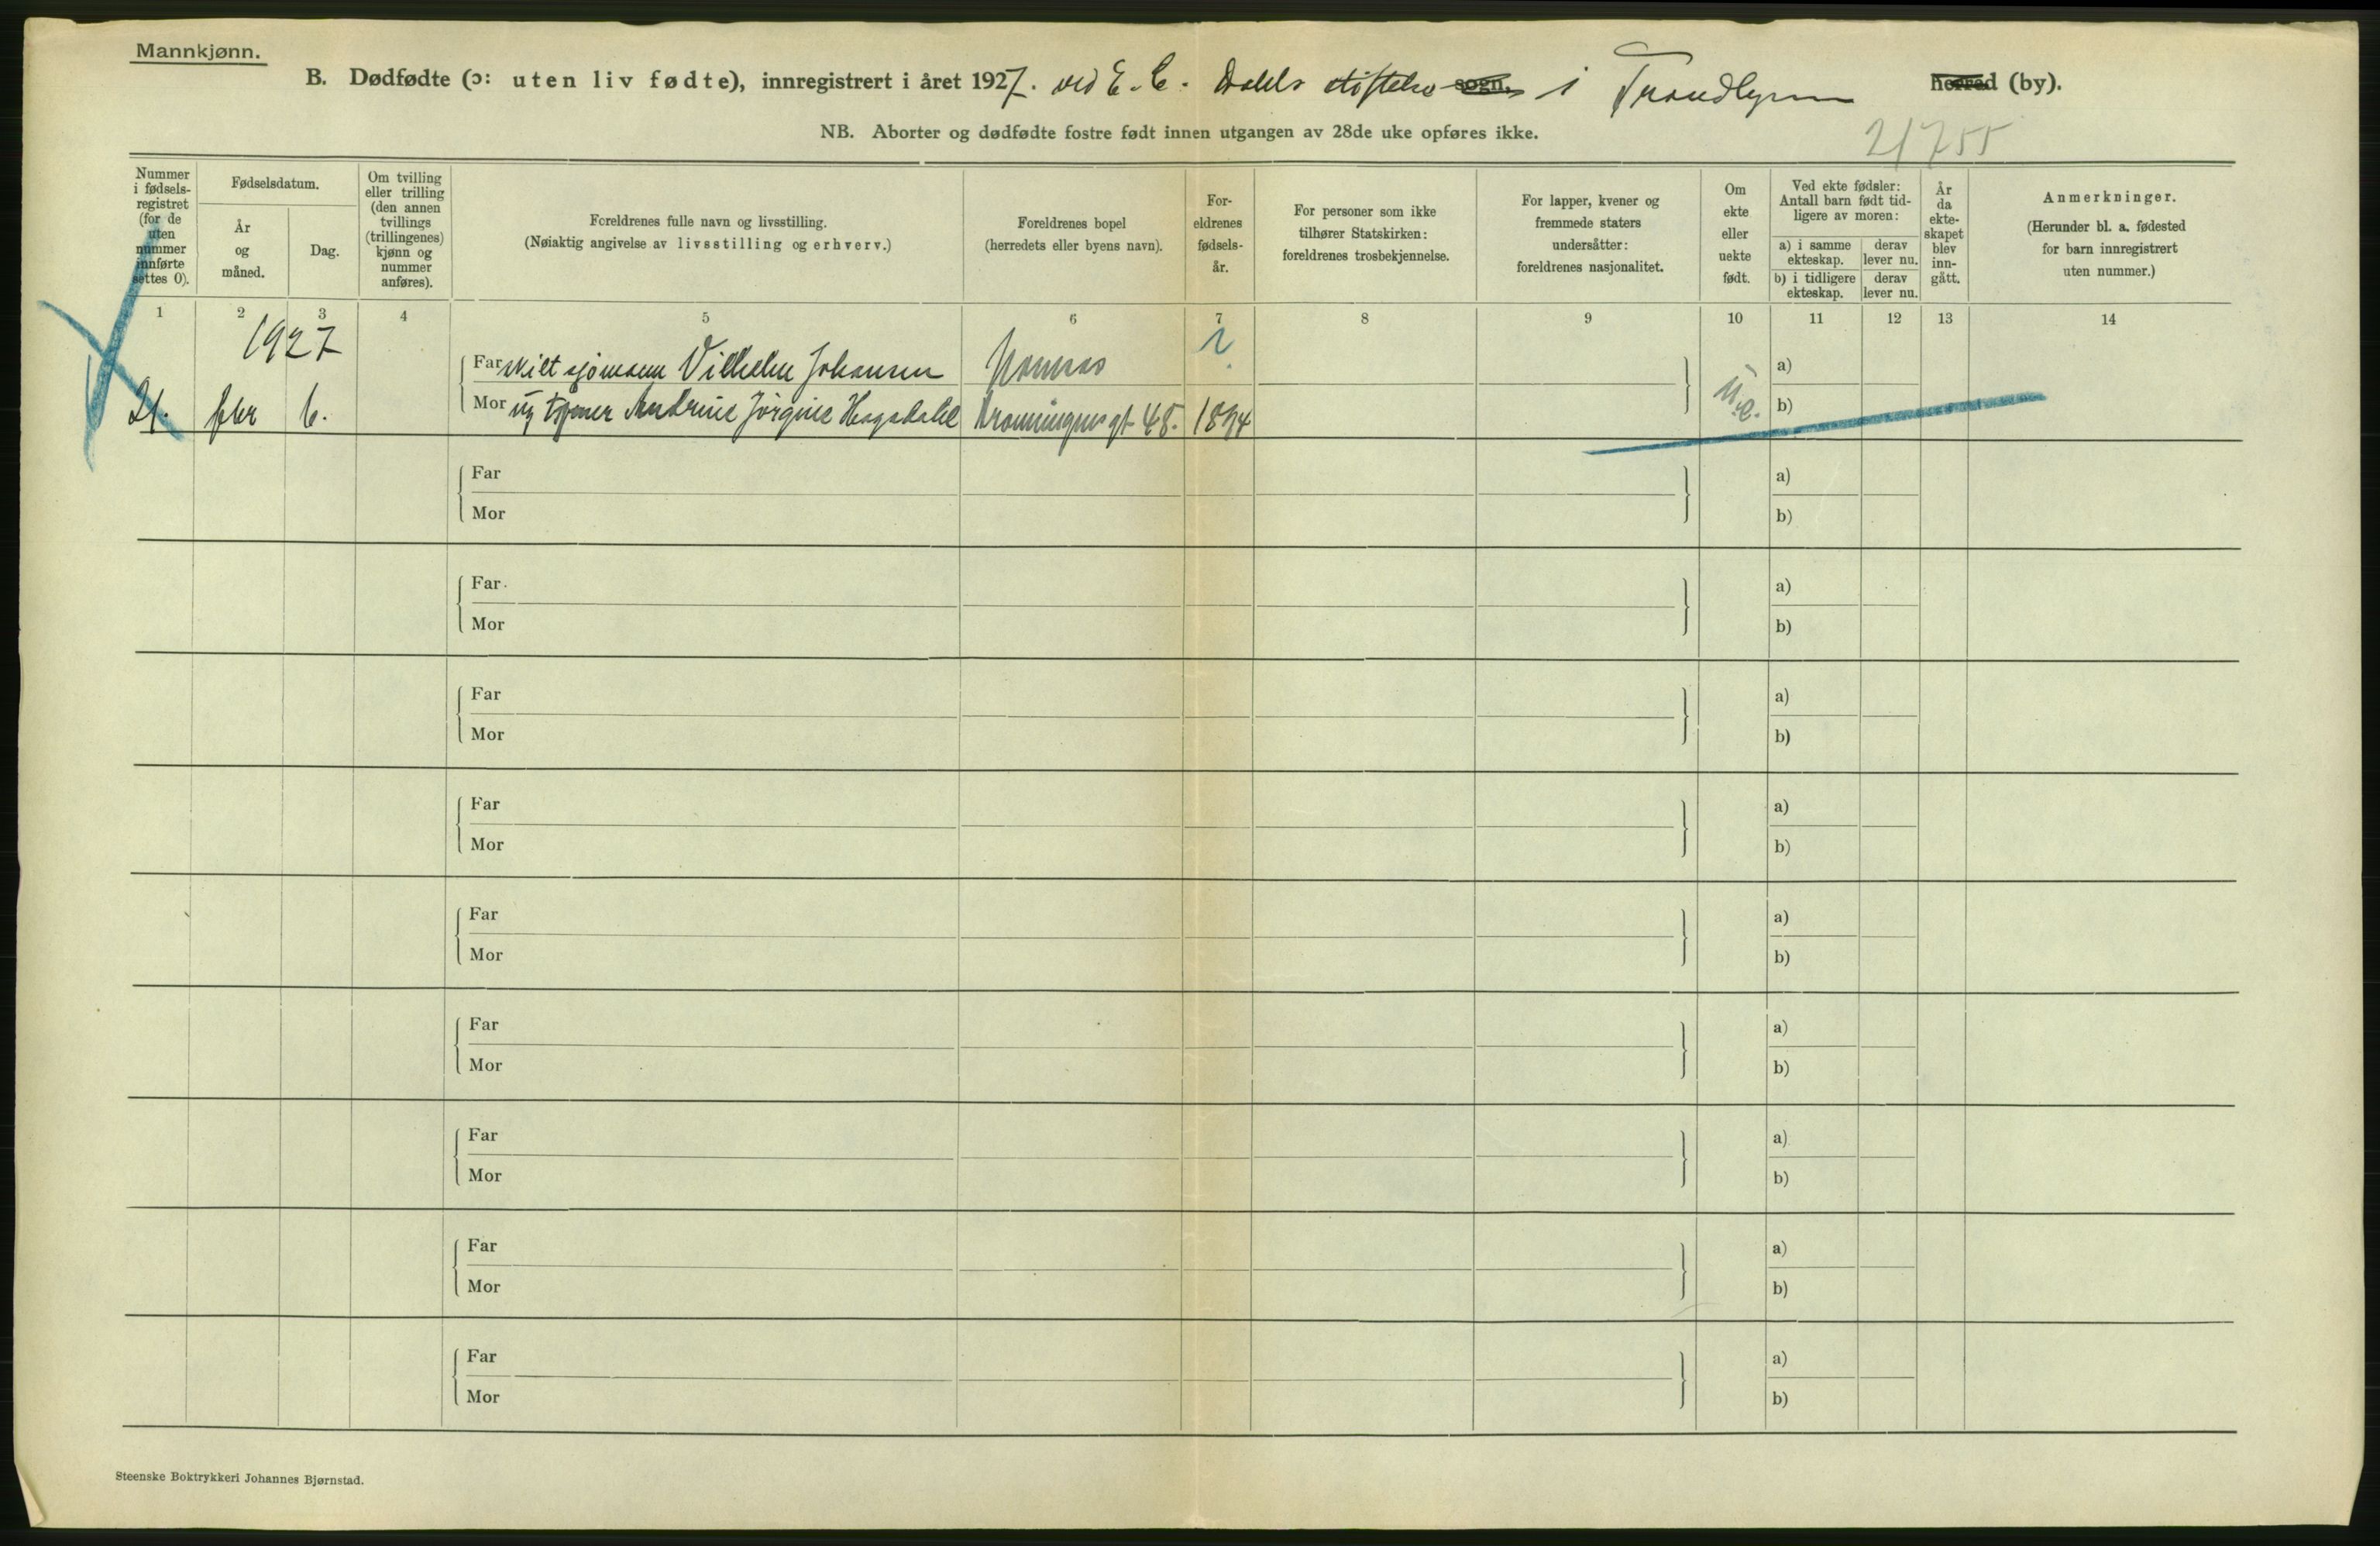 Mannkjønn.
B. Dødfødte (ɔ: uten liv fødte), innregistrert i året 1927. ved E. C. Dahls stiftelse sogn, i Trondhjem herred (by).
NB. Aborter og dødfødte fostre født innen utgangen av 28de uke opføres ikke.
21755
Nummer i fødsels- registret (for de uten nummer innførte settes 0).
Fødselsdatum.
År og måned.
Dag.
Om tvilling eller trilling (den annen tvillings (trillingenes) kjønn og nummer anføres).
Foreldrenes fulle navn og livsstilling.
(Nøiaktig angivelse av livsstilling og erhverv.)
Foreldrenes bopel
(herredets eller byens navn).
For- eldrenes fødsels- år.
For personer som ikke tilhører Statskirken: foreldrenes trosbekjennelse.
For lapper, kvener og fremmede staters undersåtter: foreldrenes nasjonalitet.
Om ekte eller uekte født.
Ved ekte fødsler: Antall barn født tid- ligere av moren:
a) i samme ekteskap.
derav lever nu.
b) i tidligere ekteskap.
derav lever nu.
År da ekte- skapet blev inn- gått.
Anmerkninger.
(Herunder bl. a. fødested for barn innregistrert uten nummer.)
1 2 3 4 5 6 7 8 9 10 11 12 13 14
1927
Far skilt sjømann Vilhelm Johansen
?
a)
21. fbr 6. Mor ug tjener Andrine Jørgine Haagdahl Dronningensgt 48. 1894 u.e. b)
Far a)
Mor b)
Far a)
Mor b)
Far a)
Mor b)
Far a)
Mor b)
Far a)
Mor b)
Far a)
Mor b)
Far a)
Mor b)
Far a)
Mor b)
Far a)
Mor b)
Steenske Boktrykkeri Johannes Bjørnstad.